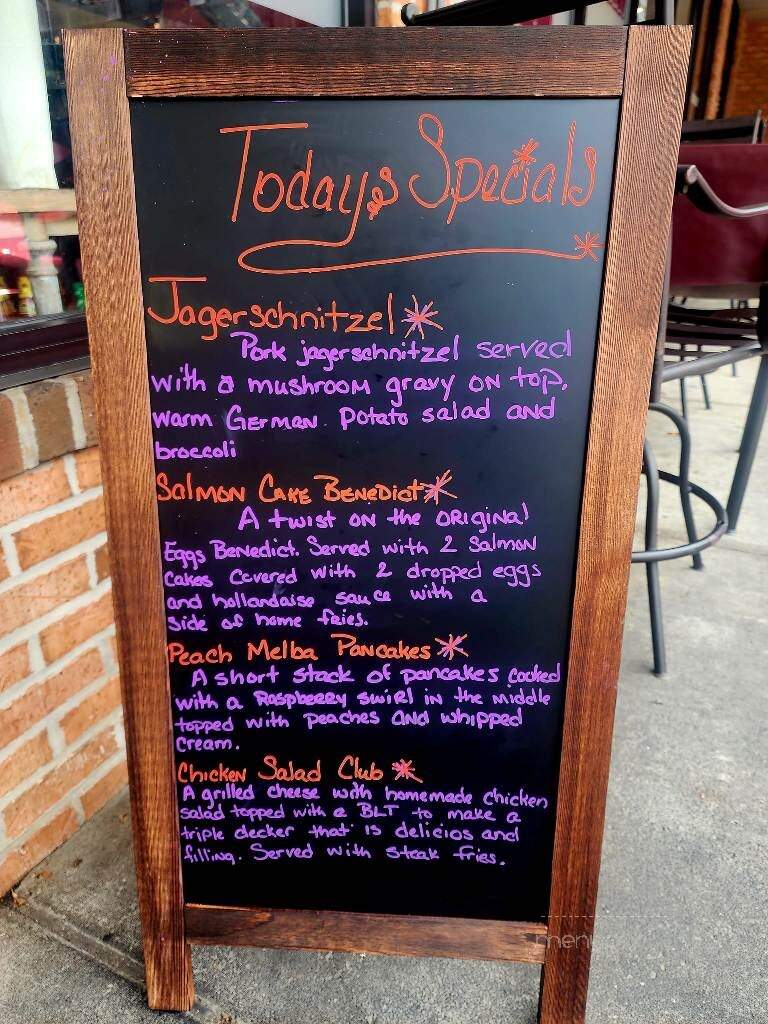 Todays Specials
Jagerschnitzel
Pork jagerschnitzel served
with a mushroom gravy on top,
warm German potato salad and
broccoli
Salmon Cake Benedict
A twist on the original
Eggs Benedict. Served with 2 Salmon
Cakes Covered with 2 dropped eggs
and hollandaise sauce with a
side of home fries.
Peach Melba Pancakes
A short stack of pancakes cooked
with a Raspberry swirl in the middle
topped with peaches and whipped
cream.
Chicken Salad Club
A grilled cheese with homemade chicken
salad topped with a BLT to make a
triple decker that is delicios and
filling. Served with steak fries.